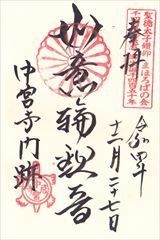 聖徳太子讃仰 まほろばの会
奉拝
令和四年
十二月二十七日
如意輪観音
中宮寺門跡